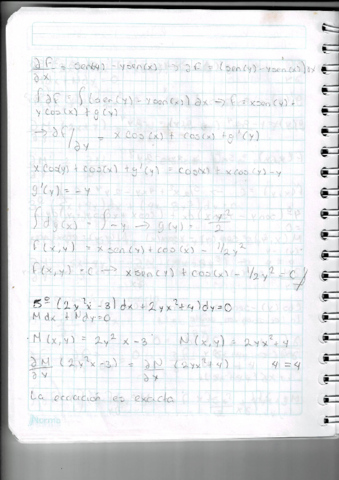 ∂F/∂x = sen(y) - y sen(x) → ∂F = (sen(y) - y sen(x))∂x
∫∂F = ∫(sen(y) - y sen(x))∂x → F = x sen(y) +
y cos(x) + g(y)
→ ∂F/∂y = x cos(y) + cos(x) + g'(y)
x cos(y) + cos(x) + g'(y) = cos(x) + x cos(y) - y
g'(y) = -y
∫dg(x) = ∫-y → g(y) = -y²/2
F(x,y) = x sen(y) + cos(x) - 1/2y²
F(x,y) = C → x sen(y) + cos(x) - 1/2y² = C
5º (2y²x - 3)dx + 2yx² + 4)dy = 0
Mdx + Ndy = 0
M(x,y) = 2y²x - 3 N(x,y) = 2yx² + 4
∂M/∂y (2y²x - 3) = ∂N/∂x (2yx² + 4) 4 = 4
La ecuación es exacta